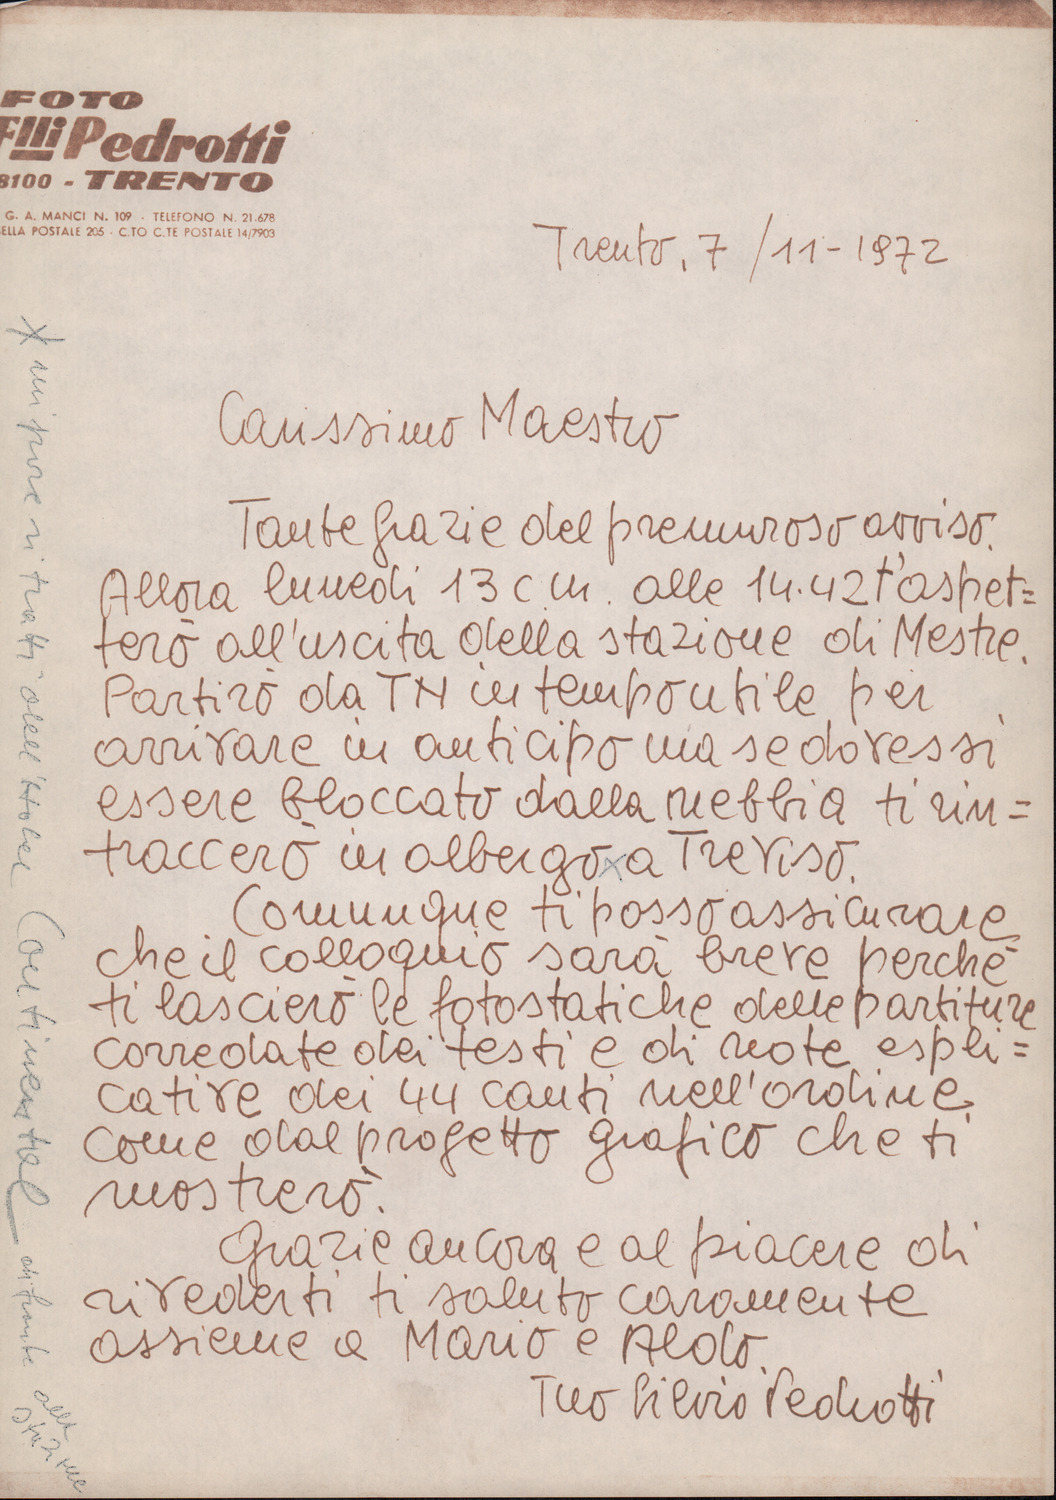 FOTO
Flli Pedrotti
8100 - TRENTO
G. A. MANCI N. 109 - TELEFONO N. 21.678
ELLA POSTALE 205 - C.TO C.TE POSTALE 14/7903
Trento, 7/11-1972
Carissimo Maestro
Tante grazie del premuroso avviso.
Allora lunedì 13 c.m. alle 14.42 t'aspet=
terò all'uscita della stazione di Mestre.
Partirò da TN in tempo utile per
arrivare in anticipo ma se dovessi
essere bloccato dalla nebbia ti rin=
traccerò in albergo x a Treviso.
Comunque ti posso assicurare
che il colloquio sarà breve perché
ti lascierò le fotostatiche delle partiture
corredate dei testi e di note espli=
cative dei 44 canti nell'ordine
come dal progetto grafico che ti
mostrerò.
Grazie ancora e al piacere di
rivederti ti saluto caramente
assieme a Mario e Aldo.
Tuo Silvio Pedrotti
* mi pare si tratti dell'Hotel Continental di fronte alla
stazione